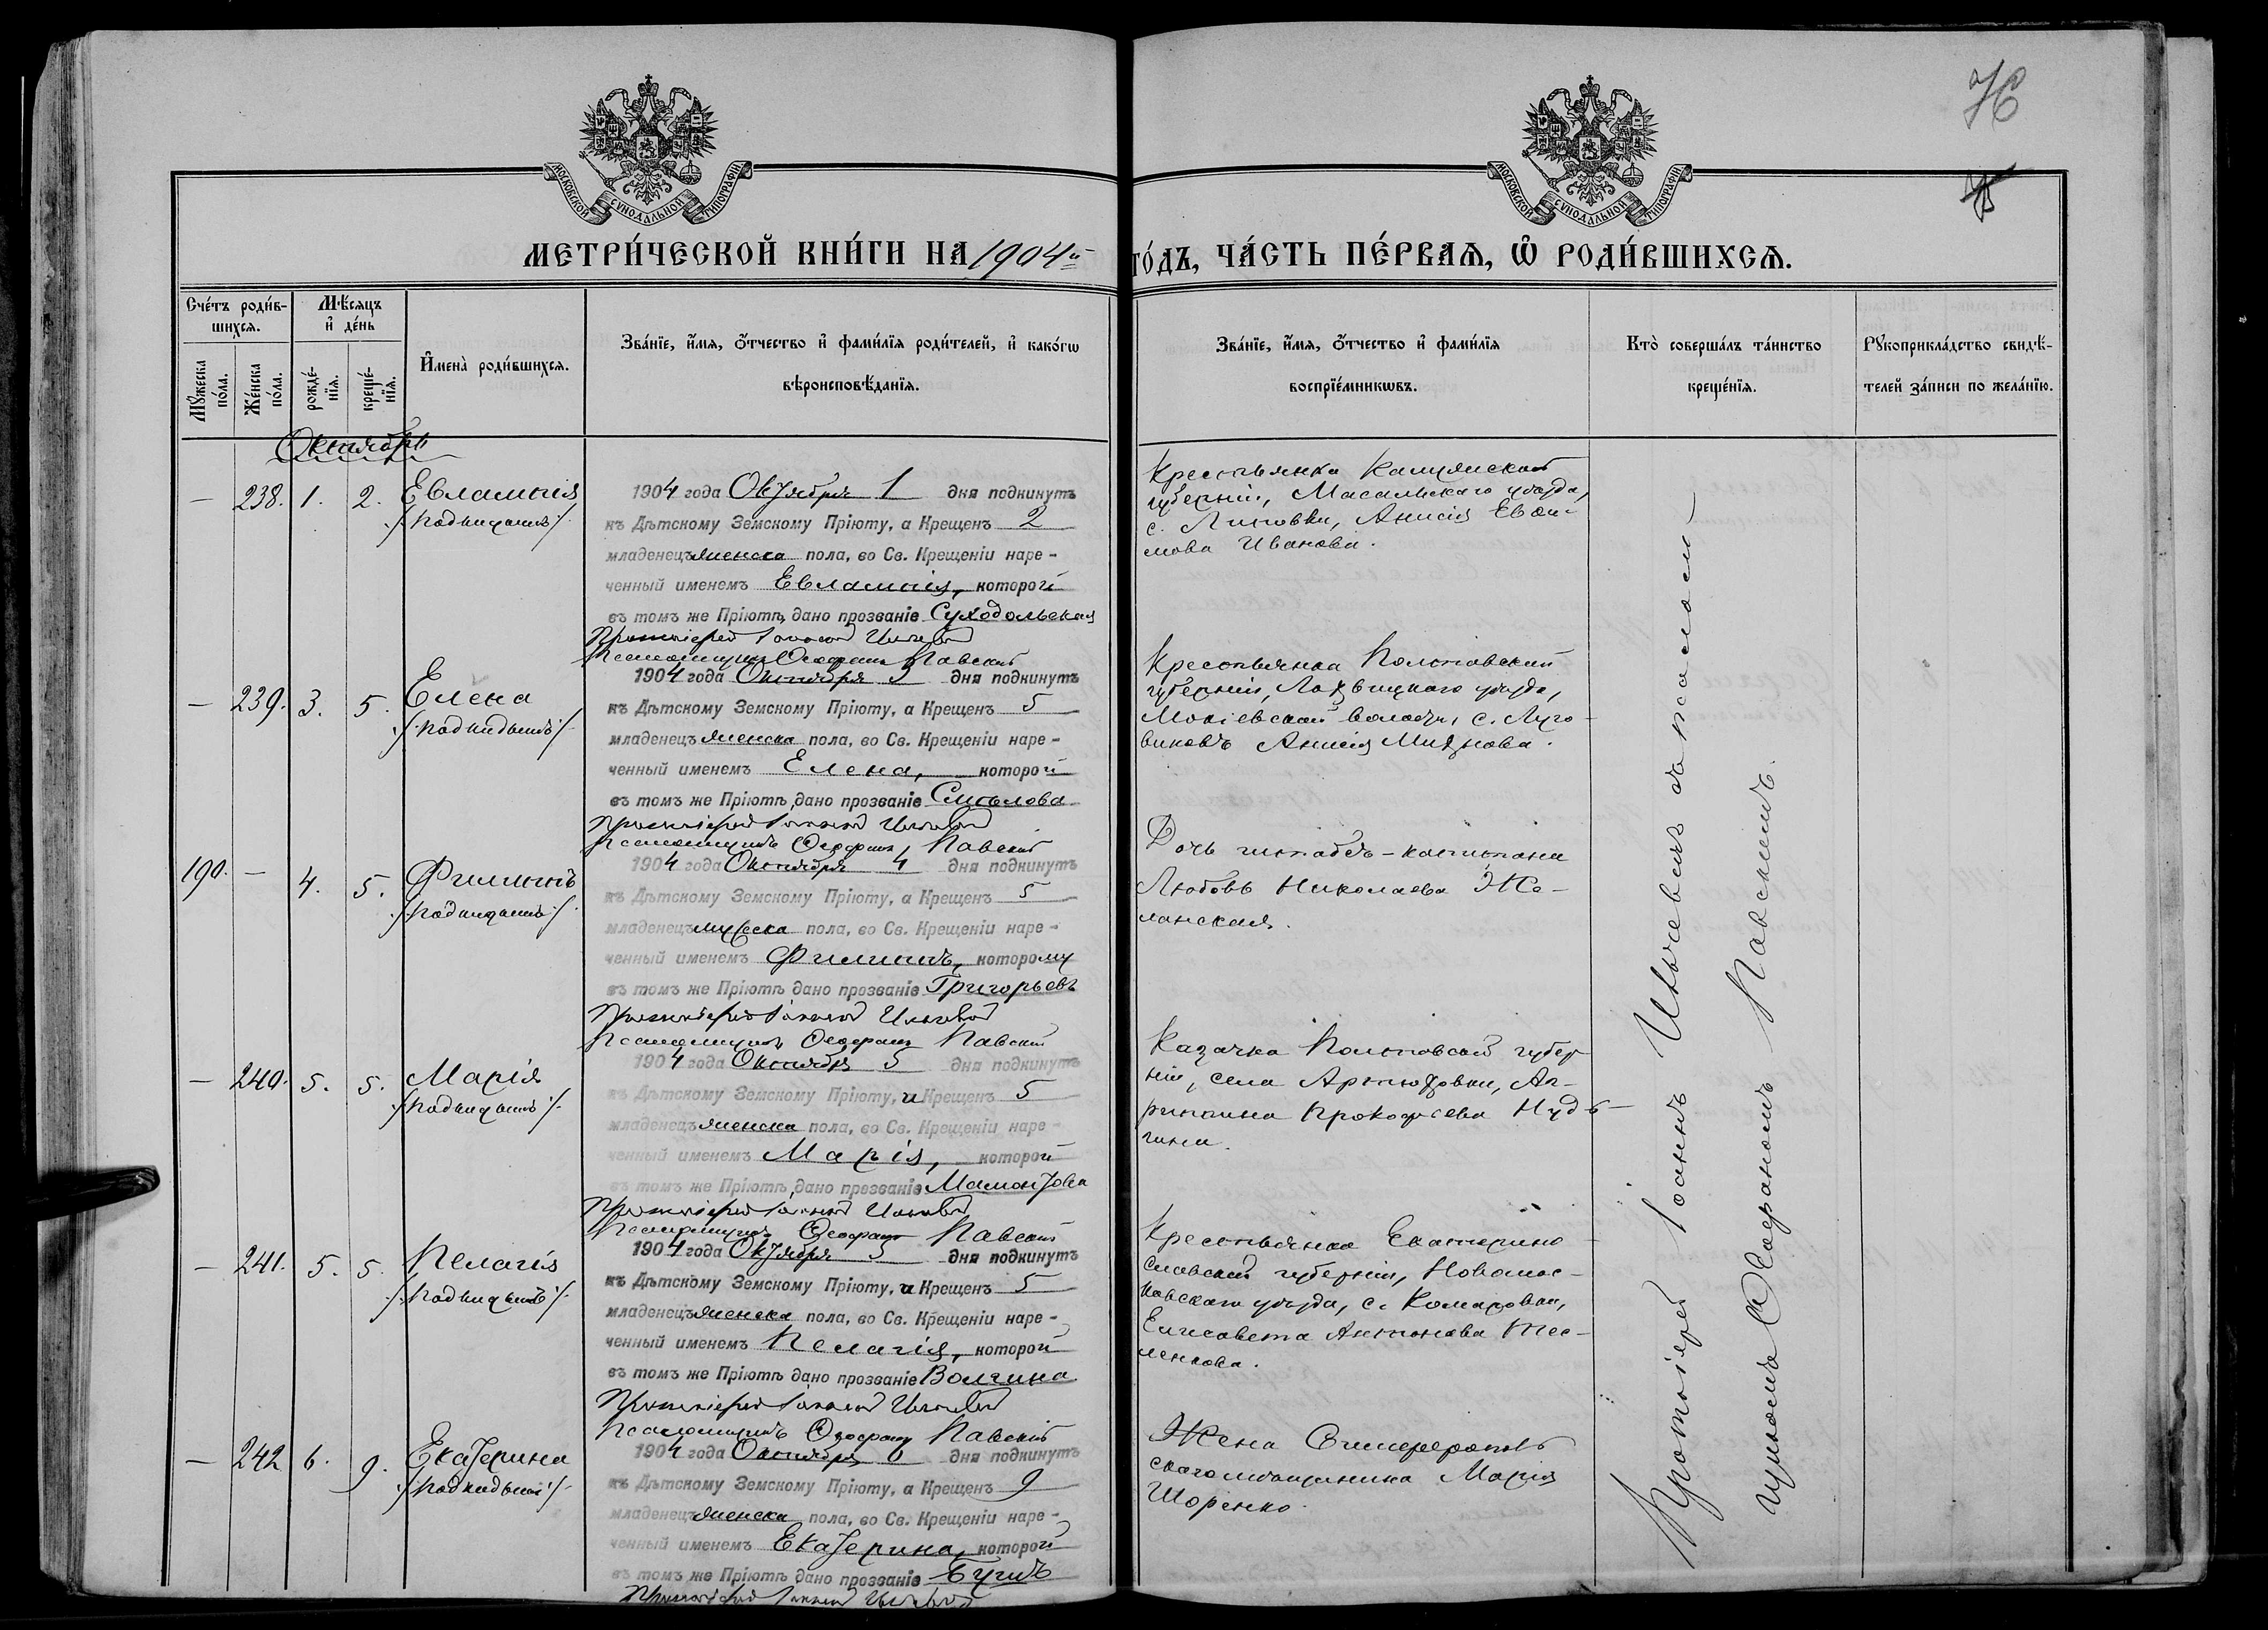 76
МОСКОВСКОЙ СѴНОДАЛЬНОЙ ТИПОГРАФІИ
МОСКОВСКОЙ СѴНОДАЛЬНОЙ ТИПОГРАФІИ
МЕТРИ́ЧЕСКОЙ КНИ́ГИ НА 1904й ГО́ДЪ, ЧА́СТЬ ПЕ́РВАѦ, Ѡ҆ РОДИ́ВШИХСѦ.
Сче́тъ роди́в-
шихсѧ.
Мꙋ́жеска по́ла.
Же́нска по́ла.
Мѣ́сѧцъ
и҆ де́нь
рожде́-
нїѧ.
креще́-
нїѧ.
И҆мена̀ роди́вшихсѧ.
Зва́нїе, и҆́мѧ, ѻ҆́тчество и҆ фами́лїѧ роди́телей, и҆ како́гѡ
вѣроисповѣ́данїѧ.
Зва́нїе, и҆́мѧ, ѻ҆́тчество и҆ фами́лїѧ
воспрїе́мникѡвъ.
Кто̀ соверша́лъ та́инство
креще́нїѧ.
Рꙋкоприкла́дство свидѣ́-
телей за́писи по жела́нїю.
Октябрь
— 238. 1. 2. Евлампія
/подкидышъ/
1904 года Октября 1 дня подкинутъ
къ Дѣтскому Земскому Пріюту, а Крещенъ 2
младенецъ женска пола, во Св. Крещеніи наре-
ченный именемъ Евлампія, которой
въ томъ же Пріютѣ, дано прозваніе Суходольская
Протоіерей Іоаннъ Ильчевъ
Псаломщикъ Ѳеофанъ Павскій
Крестьянка Калужской
губерніи, Масальскаго уѣзда,
с. Липовки, Анисія Евѳи-
мова Иванова.
— 239. 3. 5. Елена
/подкидышъ/
1904 года Октября 3 дня подкинутъ
къ Дѣтскому Земскому Пріюту, а Крещенъ 5
младенецъ женска пола, во Св. Крещеніи наре-
ченный именемъ Елена, которой
въ томъ же Пріютѣ, дано прозваніе Смѣлова
Протоіерей Іоаннъ Ильчевъ
Псаломщикъ Ѳеофанъ Павскій
Крестьянка Полтавской
губерніи, Лохвицкаго уѣзда,
волости, с. Луго-
виковъ Анисія
190. — 4. 5. Филиппъ
/подкидышъ/
1904 года Октября 4 дня подкинутъ
къ Дѣтскому Земскому Пріюту, а Крещенъ 5
младенецъ мужеска пола, во Св. Крещеніи наре-
ченный именемъ Филиппъ, которому
въ томъ же Пріютѣ дано прозваніе Григорьевъ
Протоіерей Іоаннъ Ильчевъ
Псаломщикъ Ѳеофанъ Павскій
Дочь штабсъ-капитана
Любовь Николаева Же-
ланская.
— 240. 5. 5. Марія
/подкидышъ/
1904 года Октября 5 дня подкинутъ
къ Дѣтскому Земскому Пріюту, и Крещенъ 5
младенецъ женска пола, во Св. Крещеніи наре-
ченный именемъ Марія, которой
въ томъ же Пріютѣ, дано прозваніе Мамонтова
Протоіерей Іоаннъ Ильчевъ
Псаломщикъ Ѳеофанъ Павскій
Казачка Полтавской губер-
ніи, села Артюховки, Аг-
рипина Прокофіева Нуд-
гина.
— 241. 5. 5. Пелагія
/подкидышъ/
1904 года Октября 5 дня подкинутъ
къ Дѣтскому Земскому Пріюту, и Крещенъ 5
младенецъ женска пола, во Св. Крещеніи наре-
ченный именемъ Пелагія, которой
въ томъ же Пріютѣ дано прозваніе Волгина
Протоіерей Іоаннъ Ильчевъ
Псаломщикъ Ѳеофанъ Павскій
Крестьянка Екатерино-
славской губерніи, Новомос-
ковскаго уѣзда, с. Комаровки,
Елисавета Антонова Тес-
ленкова.
— 242 6. 9. Екатерина
/подкидышъ/
1904 года Октября 6 дня подкинутъ
къ Дѣтскому Земскому Пріюту, а Крещенъ 9
младенецъ женска пола, во Св. Крещеніи наре-
ченный именемъ Екатерина, которой
въ томъ же Пріютѣ дано прозваніе Бугъ
Протоіерей Іоаннъ Ильчевъ
Жена Симферополь-
скаго мѣщанина Марія
Шоренко.
Протоіерей Іоаннъ Ильчевъ съ псалом-
щикомъ Ѳеофаномъ Павскимъ.